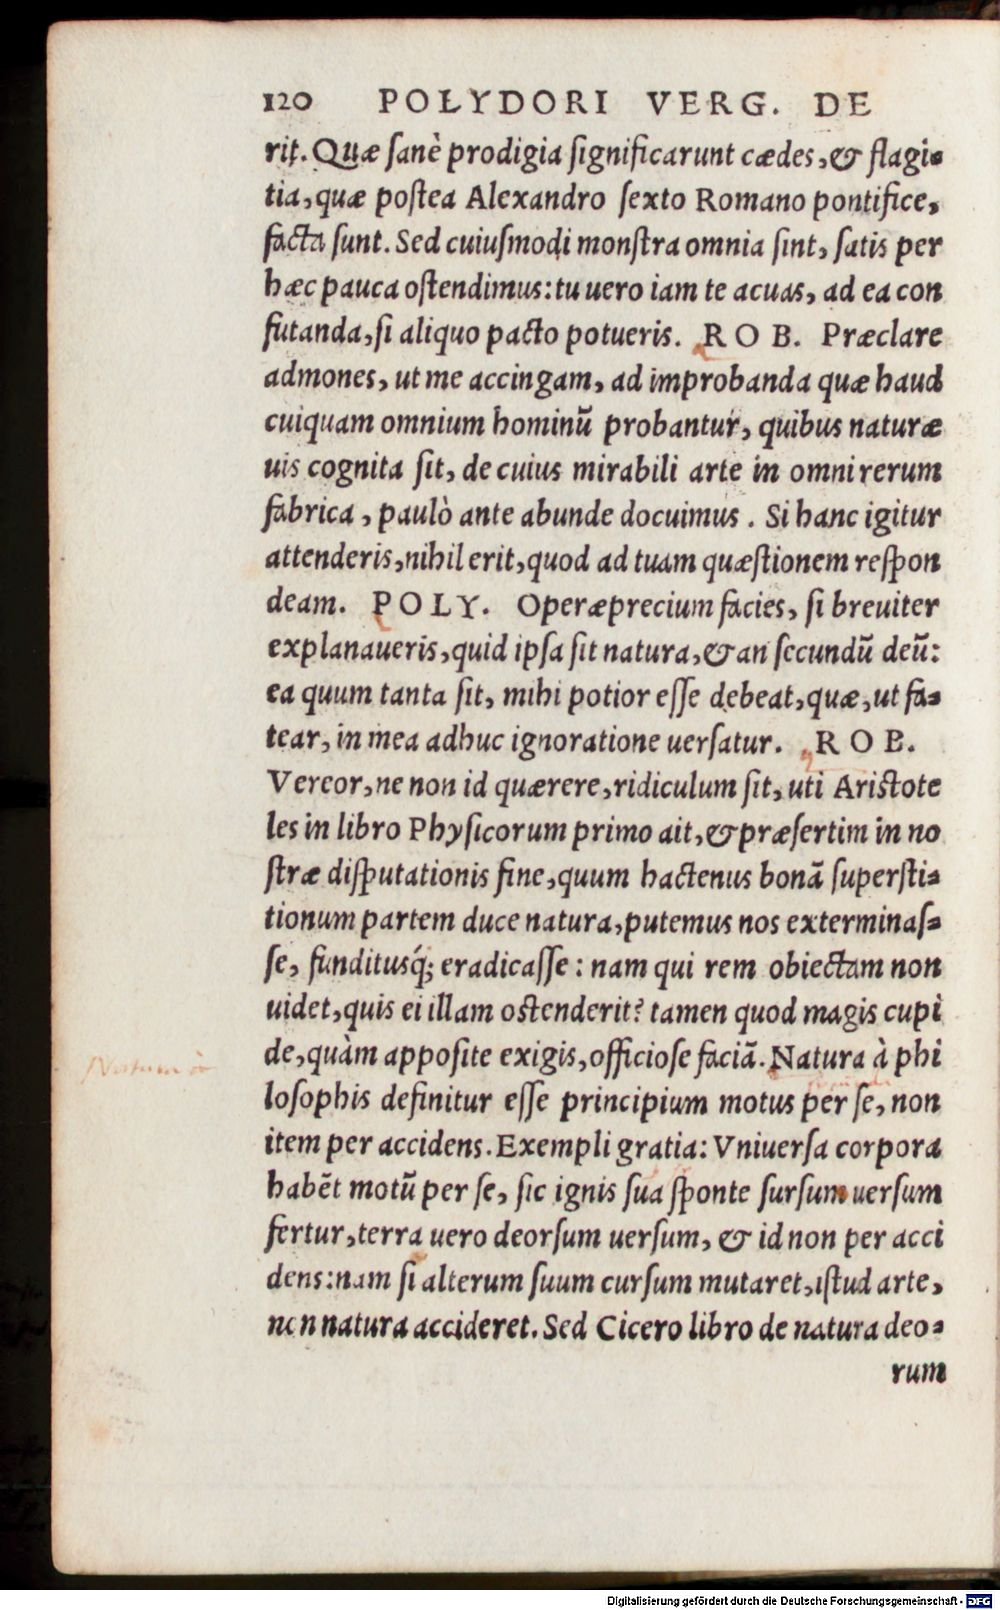 120 POLYDORI VERG. DE
rit. Quæ sanè prodigia significarunt cædes, & flagi-
tia, quæ postea Alexandro sexto Romano pontifice,
facta sunt. Sed cuiusmodi monstra omnia sint, satis per
hæc pauca ostendimus: tu uero iam te acuas, ad ea con
futanda, si aliquo pacto potueris. ROB. Præclare
admones, ut me accingam, ad improbanda quæ haud
cuiquam omnium hominū probantur, quibus naturæ
uis cognita sit, de cuius mirabili arte in omni rerum
fabrica, paulò ante abunde docuimus. Si hanc igitur
attenderis, nihil erit, quod ad tuam quæstionem respon
deam. POLY. Operæprecium facies, si breuiter
explanaueris, quid ipsa sit natura, & an secundū deū:
ea quum tanta sit, mihi potior esse debeat, quæ, ut fa-
tear, in mea adhuc ignoratione uersatur. ROB.
Vereor, ne non id quærere, ridiculum sit, uti Aristote
les in libro Physicorum primo ait, & præsertim in no
stræ disputationis fine, quum hactenus bonā supersti-
tionum partem duce natura, putemus nos exterminas-
se, funditusq́; eradicasse: nam qui rem obiectam non
uidet, quis ei illam ostenderit? tamen quod magis cupi
de, quàm apposite exigis, officiose faciā. Natura à phi
losophis definitur esse principium motus per se, non
item per accidens. Exempli gratia: Vniuersa corpora
habēt motū per se, sic ignis sua sponte sursum uersum
fertur, terra uero deorsum uersum, & id non per acci
dens: nam si alterum suum cursum mutaret, istud arte,
non natura accideret. Sed Cicero libro de natura deo-
rum
Digitalisierung gefördert durch die Deutsche Forschungsgemeinschaft - DFG